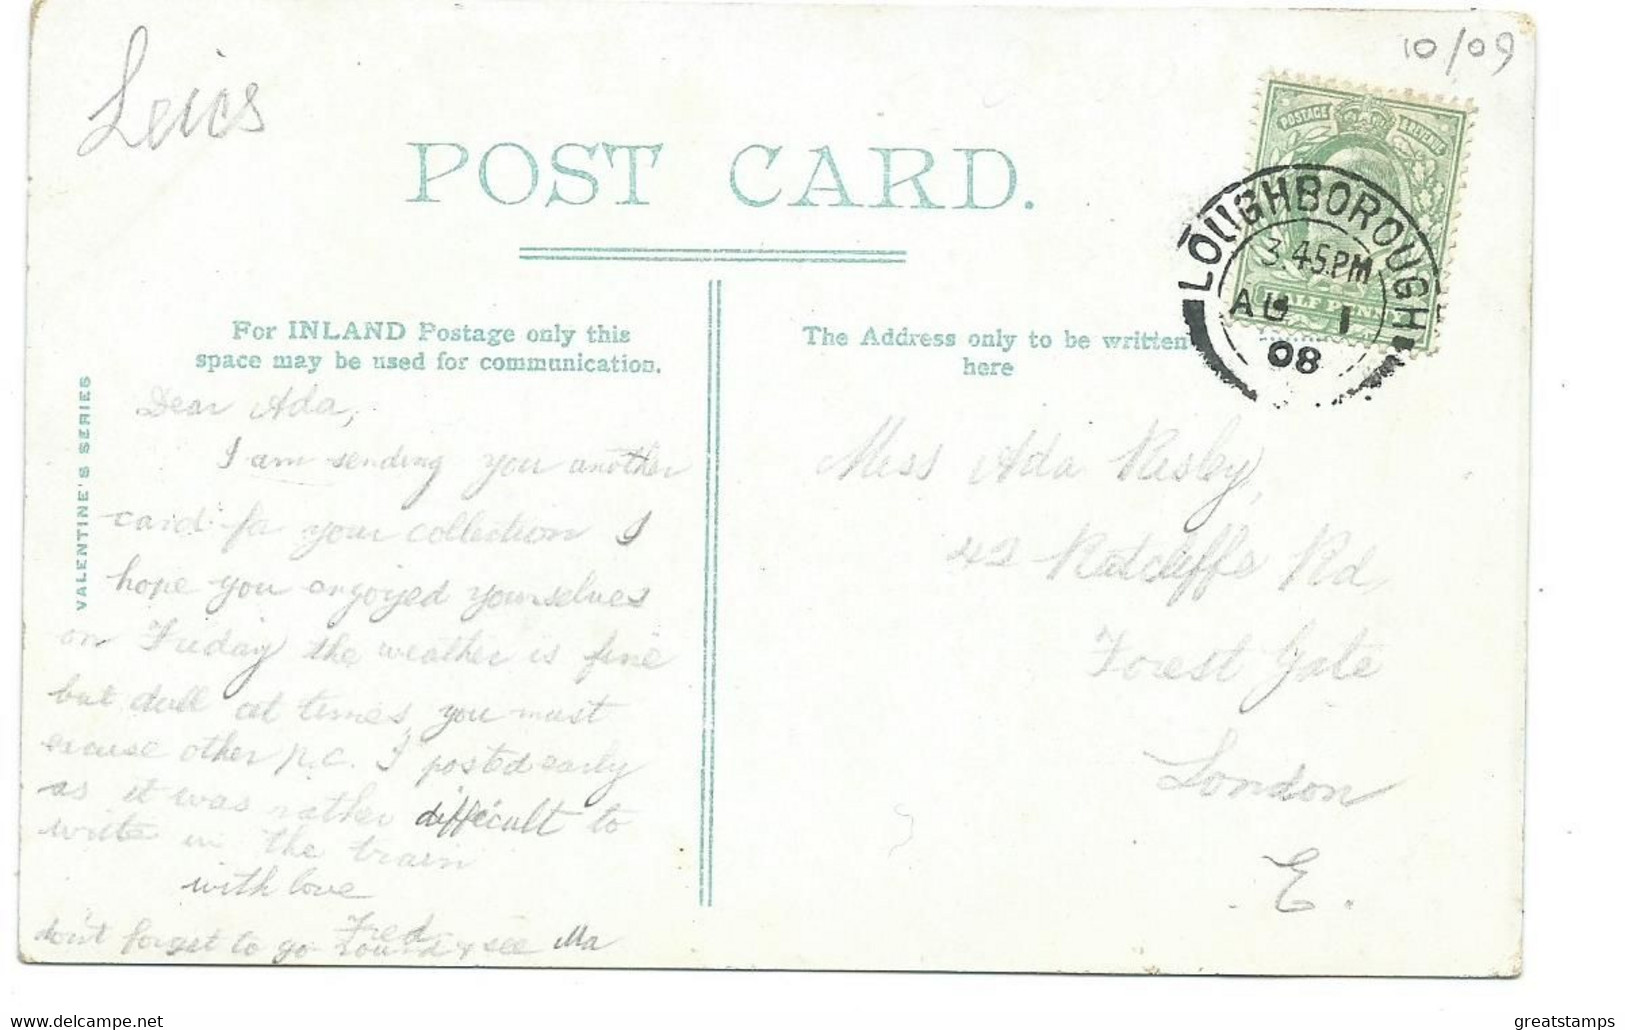 Leics
10/09
POST CARD.
POSTAGE REVENUE
HALF PENNY
LOUGHBOROUGH
3.45PM
AU 1
08
For INLAND Postage only this
space may be used for communication.
The Address only to be written
here
VALENTINE'S SERIES
Dear Ada,
I am sending you another
card for your collection I
hope you enjoyed yourselves
on Friday the weather is fine
but dull at times, you must
excuse other p.c. I posted early
as it was rather difficult to
write in the train
with love
Fred
don't forget to go round & see Ma
Miss Ada Risby,
42 Ratcliffs Rd,
Forest Gate
London
E.
greatstamps
www.delcampe.net